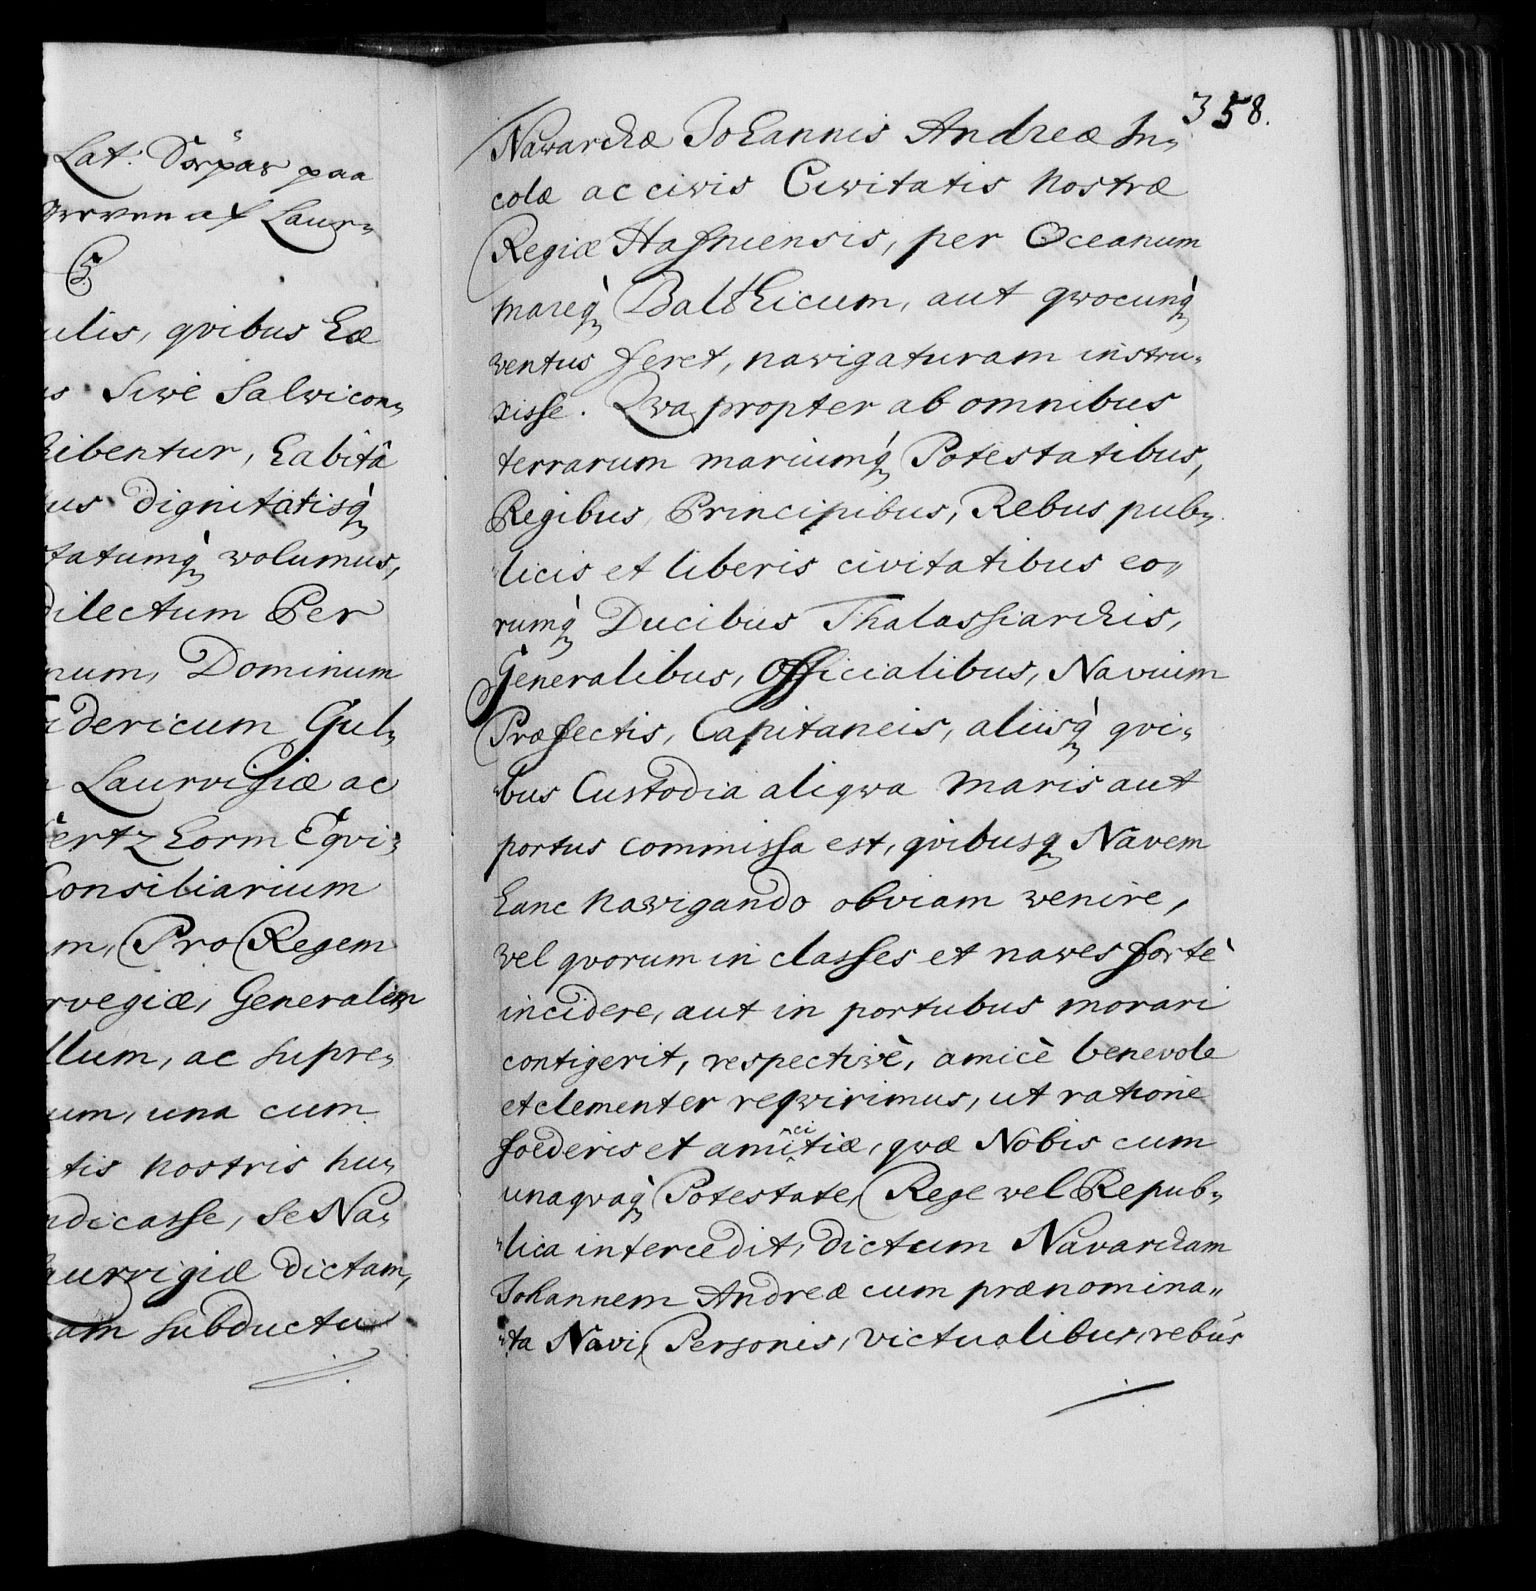 Lat: Söepas paa
Greven af Laur-
ulis, qvibus hæ
s sive salvi con-
hibentur, habitâ
us dignitatisq̀
tatumq̀ wolumus,
dilectum Per
num, Dominum
idericum Gul-
Laurvigiæ ac
hertzhorm Eqvi-
Consiliarium
m, Pro Regem
rvegiæ, Generalem
llum, ac supre-
um, una cum
tis nostris hu-
ndicasse, se Na-
aurvigiæ dictam,
am subductu
358.
Nawarchæ Johannis Andreæ In-
colæ ac civis Civitatis nostræ
Regiæ Hafniensis, per Oceanum
mareq̀ Balthicum, aut qwocunq̀
ventus feret, navigaturam instru-
xisse. Qwapropter ab omnibus
terrarum mariumq̀ Potestatibus,
Regibus, Principibus, Rebus pub-
licis et liberis civitatibus eo-
rumq̀ Ducibus Thalassiarchis,
Generalibus, Officialibus, Navium
Præfectis, Capitaneis, aliisq̀ qvi-
bus Custodia aliqwa maris aut
portus commissa est, qvibusq Navem
hanc nawigando obviam wenire,
vel qvorum in classes et naves fortè
incidere, aut in portubus morari
contigerit, respectivè, amicè benevole
et clementer reqwirimus, ut ratione
foederis et amicitiæ, qvæ Nobis cum
unaqvaq̀ Potestate, Rege vel Repub-
lica intercedit, dictum Navarcham
Johannem Andreæ cum prænomina-
ta Navi, Personis, victualibus, rebus